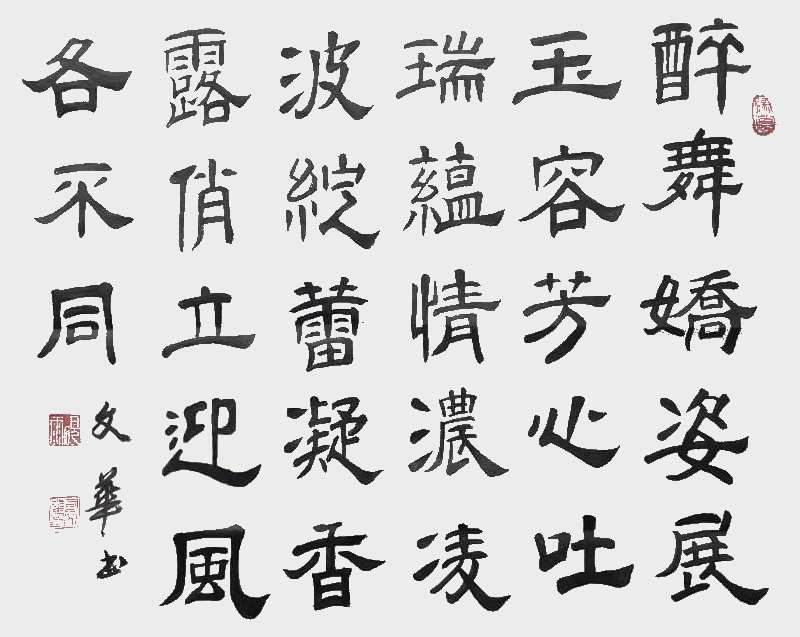 醉舞嬌姿展
玉容芳心吐
瑞蘊情濃凌
波綻蕾凝香
露俏立迎風
各不同
文華书